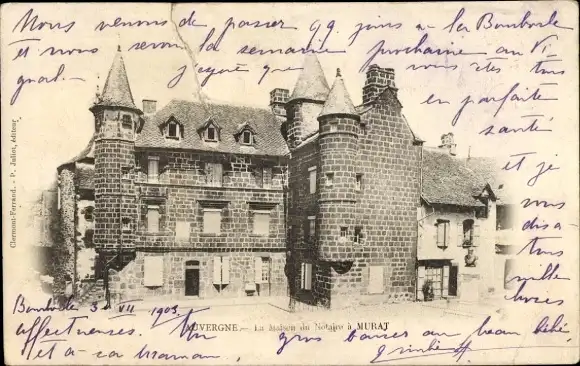 Nous venons de passer qq jours à la Bourboule
et nous serons la semaine prochaine au Vi-
gnal.— J'espère que vous êtes tous
en parfaite
santé
et je
vous
dis à
tous
mille
choses
Bourboule 3-VII 1903.
affectueuses. Un gros baiser au beau bébé
et à sa maman
Clermont-Ferrand. - P. Juliot, éditeur
AUVERGNE. — La Maison du Notaire à MURAT